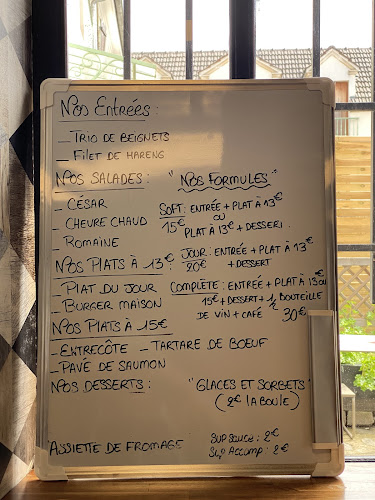 Nos Entrées :
_ Trio de beignets
_ Filet de hareng
Nos Salades :
_ César
_ Chevre chaud
_ Romaine
"Nos Formules"
Soft : Entrée + Plat à 13€
15€ ou
Plat à 13€ + Dessert
Jour : Entrée + Plat à 13€
20€ + Dessert
Complète : Entrée + Plat à 13 ou
15€ + Dessert + 1/2 Bouteille
de vin + café 30€
Nos Plats à 13€ :
_ Plat du jour
_ Burger maison
Nos Plats à 15€
_ Entrecôte _ Tartare de boeuf
_ Pavé de saumon
Nos Desserts :
"Glaces et sorbets"
(2€ la boule)
Assiette de fromage
Sup sauce : 2€
Sup Accomp : 2€